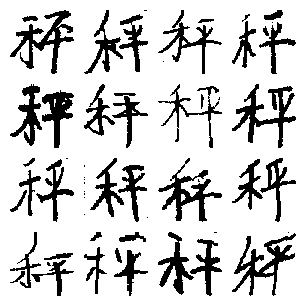 秤秤秤秤
秤秤秤秤
秤秤秤秤
秤秤秤秤